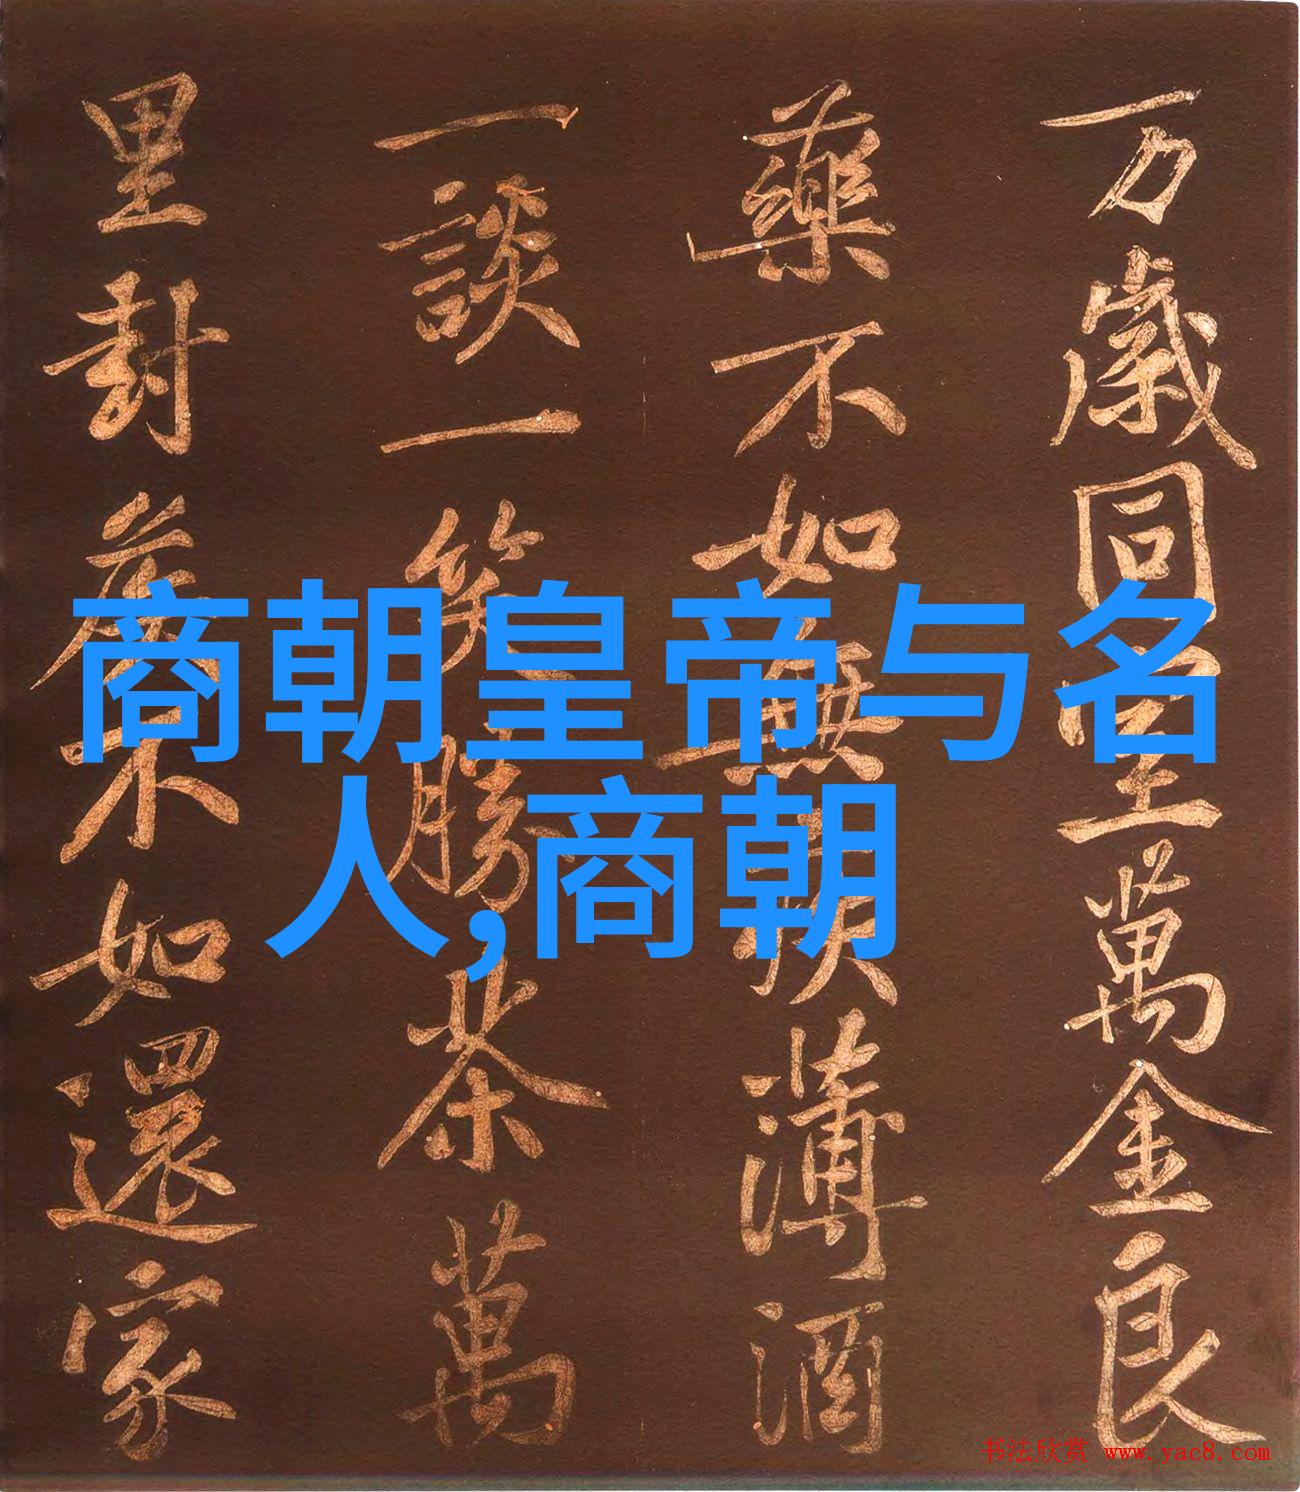 万歲同室萬金良
藥不如無疾薄酒
一談一笑勝茶萬
里封侯不如還家
商朝皇帝与名
人,商朝
书法欣赏 www.yac8.com